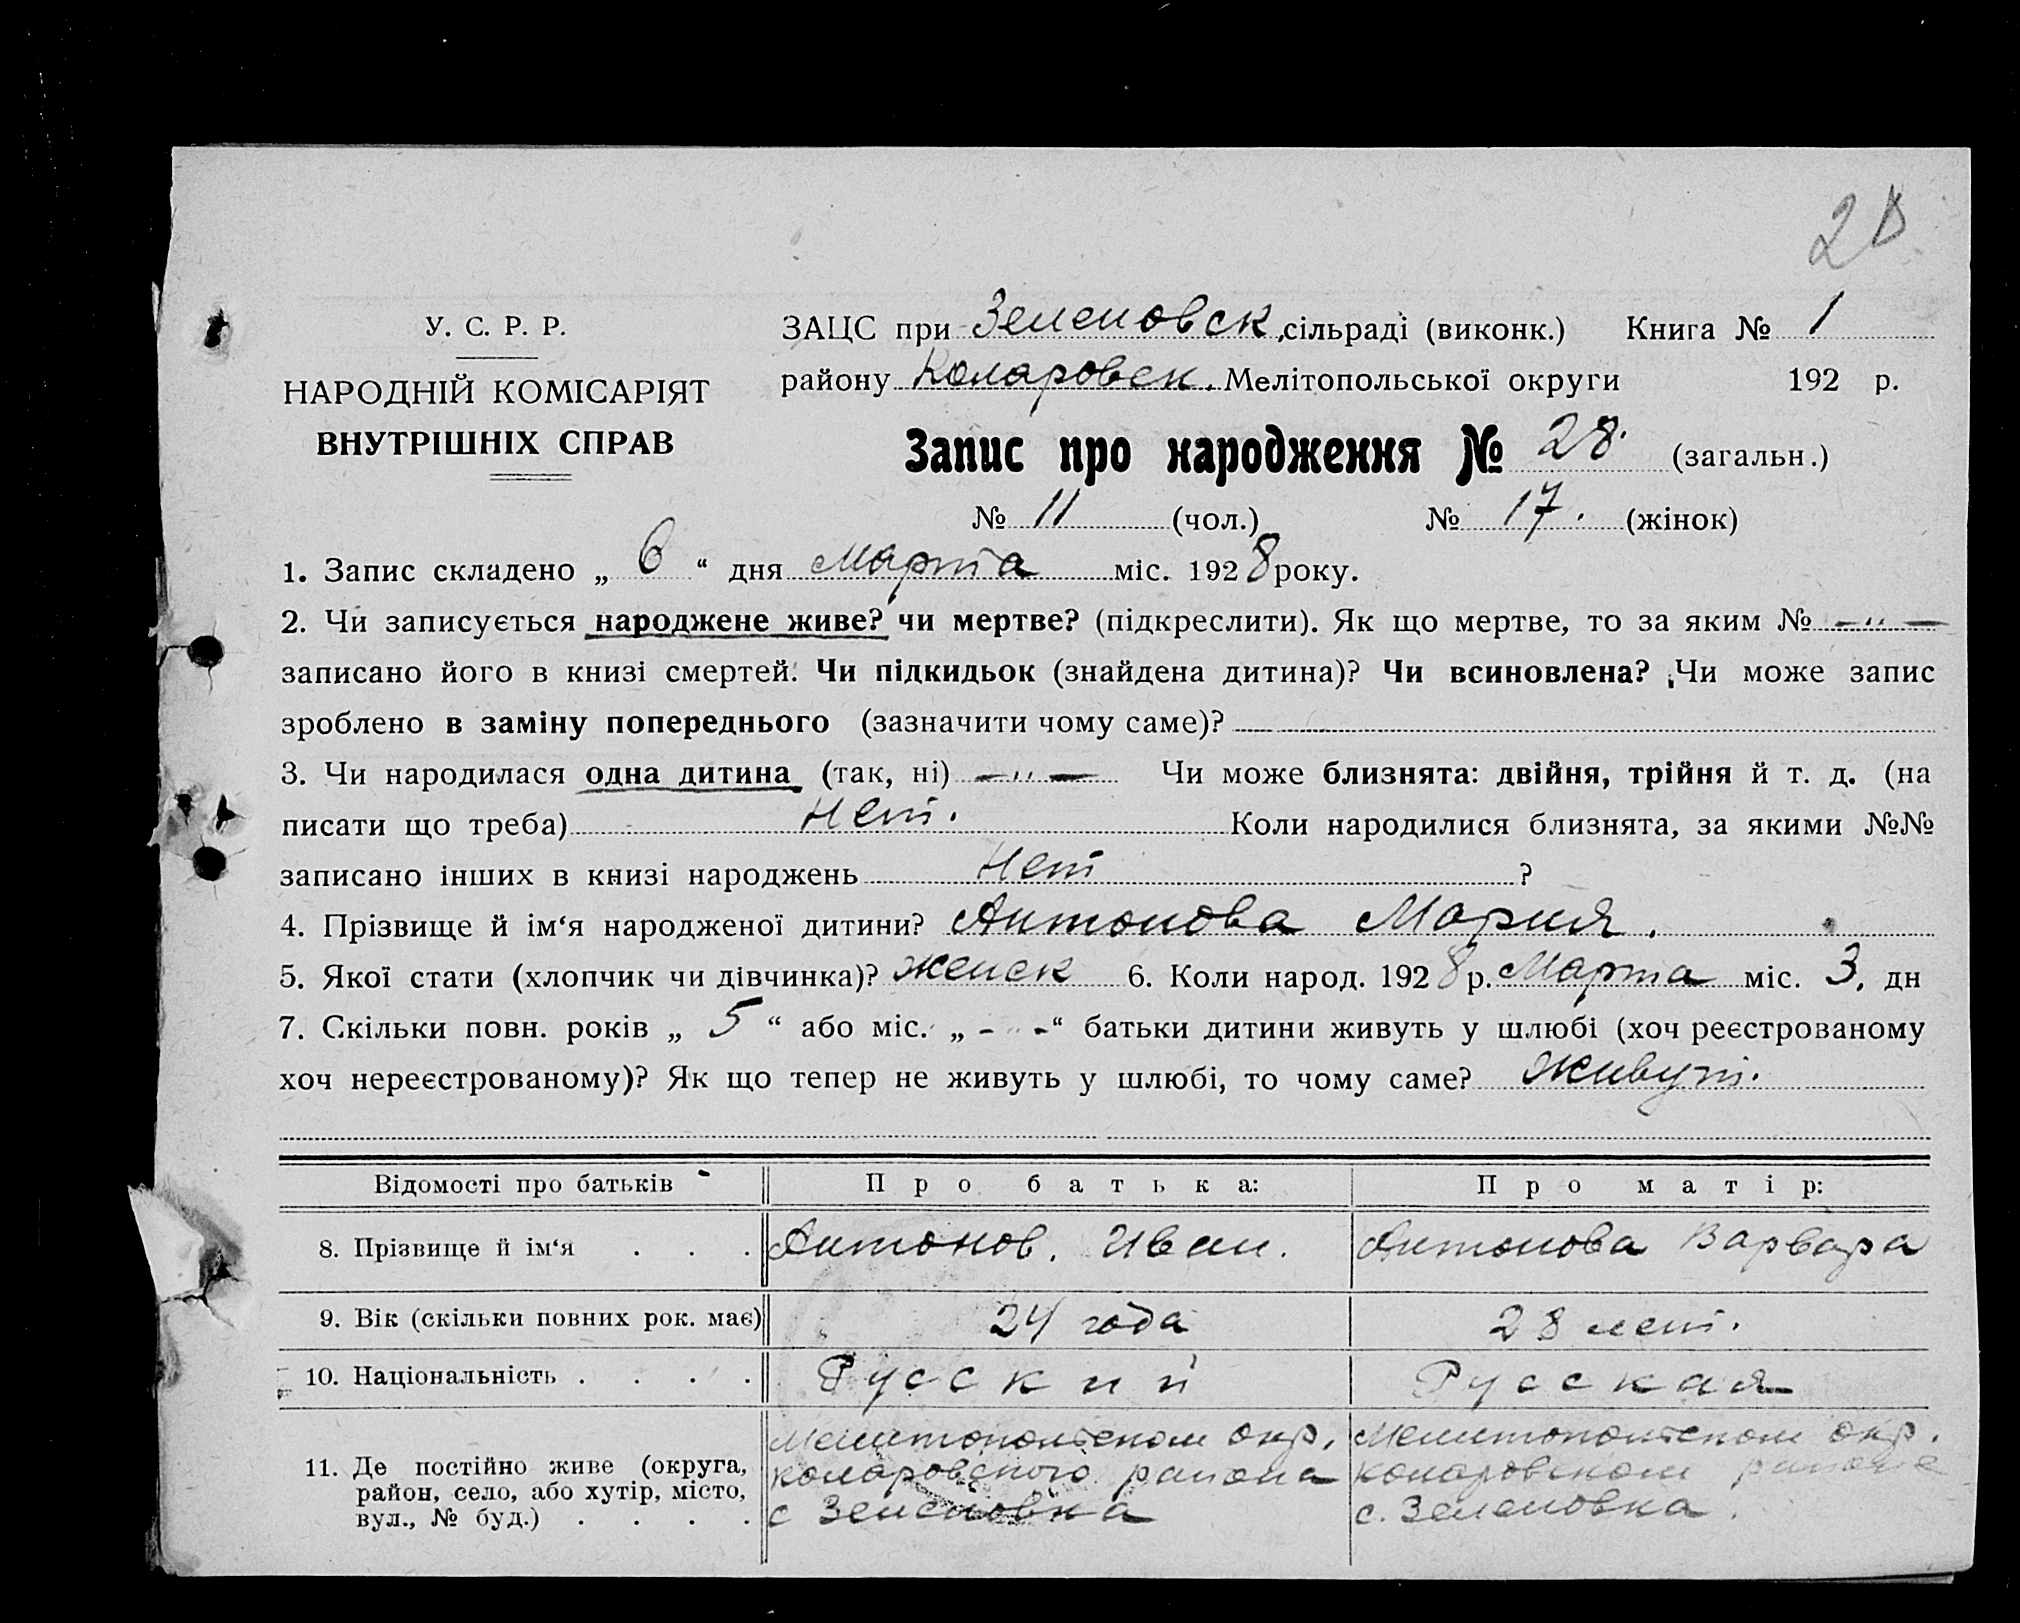 28
У. С. Р. Р.
НАРОДНІЙ КОМІСАРІЯТ
ВНУТРІШНІХ СПРАВ
ЗАЦС при Зеленовск. сільраді (виконк.) Книга № 1
району Коларовск. Мелітопольської округи 192 р.
Запис про народження № 28. (загальн.)
№ 11 (чол.) № 17. (жінок)
1. Запис складено „ 6 “ дня Марта міс. 1928 року.
2. Чи записується народжене живе? чи мертве? (підкреслити). Як що мертве, то за яким № — „ —
записано його в книзі смертей. Чи підкидьок (знайдена дитина)? Чи всиновлена? Чи може запис
зроблено в заміну попереднього (зазначити чому саме)?
3. Чи народилася одна дитина (так, ні) — „ — Чи може близнята: двійня, трійня й т. д. (на
писати що треба) Нет. Коли народилися близнята, за якими №№
записано інших в книзі народжень Нет ?
4. Прізвище й ім‘я народженої дитини? Антонова Мария.
5. Якої стати (хлопчик чи дівчинка)? Женск 6. Коли народ. 1928 р. Марта міс. 3. дн
7. Скільки повн. років „ 5 “ або міс. „ - „ - “ батьки дитини живуть у шлюбі (хоч реєстрованому
хоч нереєстрованому)? Як що тепер не живуть у шлюбі, то чому саме? Живут.
Відомості про батьків Про батька: Про матір:
8. Прізвище й ім‘я . . . Антонов. Иван. Антонова Варвара
9. Вік (скільки повних рок. має) 24 года 28 лет.
10. Національність . . . . Русский Русская
Мелитопольском окр. Мелитопольском окр.
11. Де постійно живе (округа, коларовского района коларовском районе
район, село, або хутір, місто, с Зеленовка с. Зеленовка.
вул., № буд.) . . . .